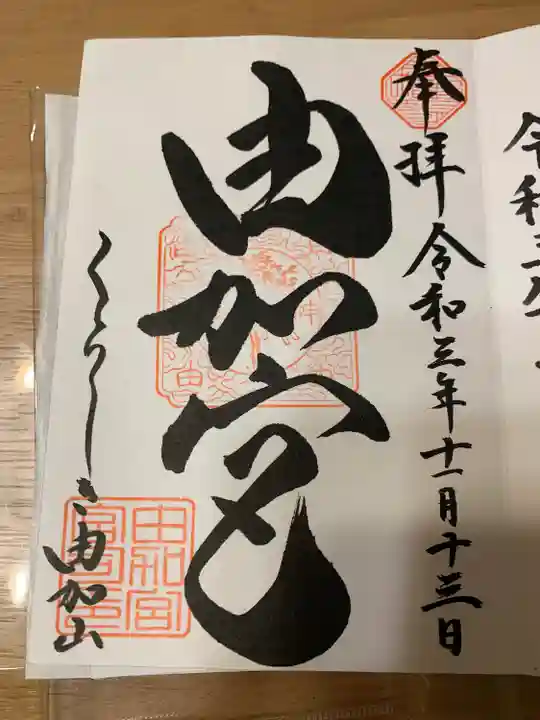 奉拝 令和三年十一月十三日
由加宮
くらしき 由加山
令和三年